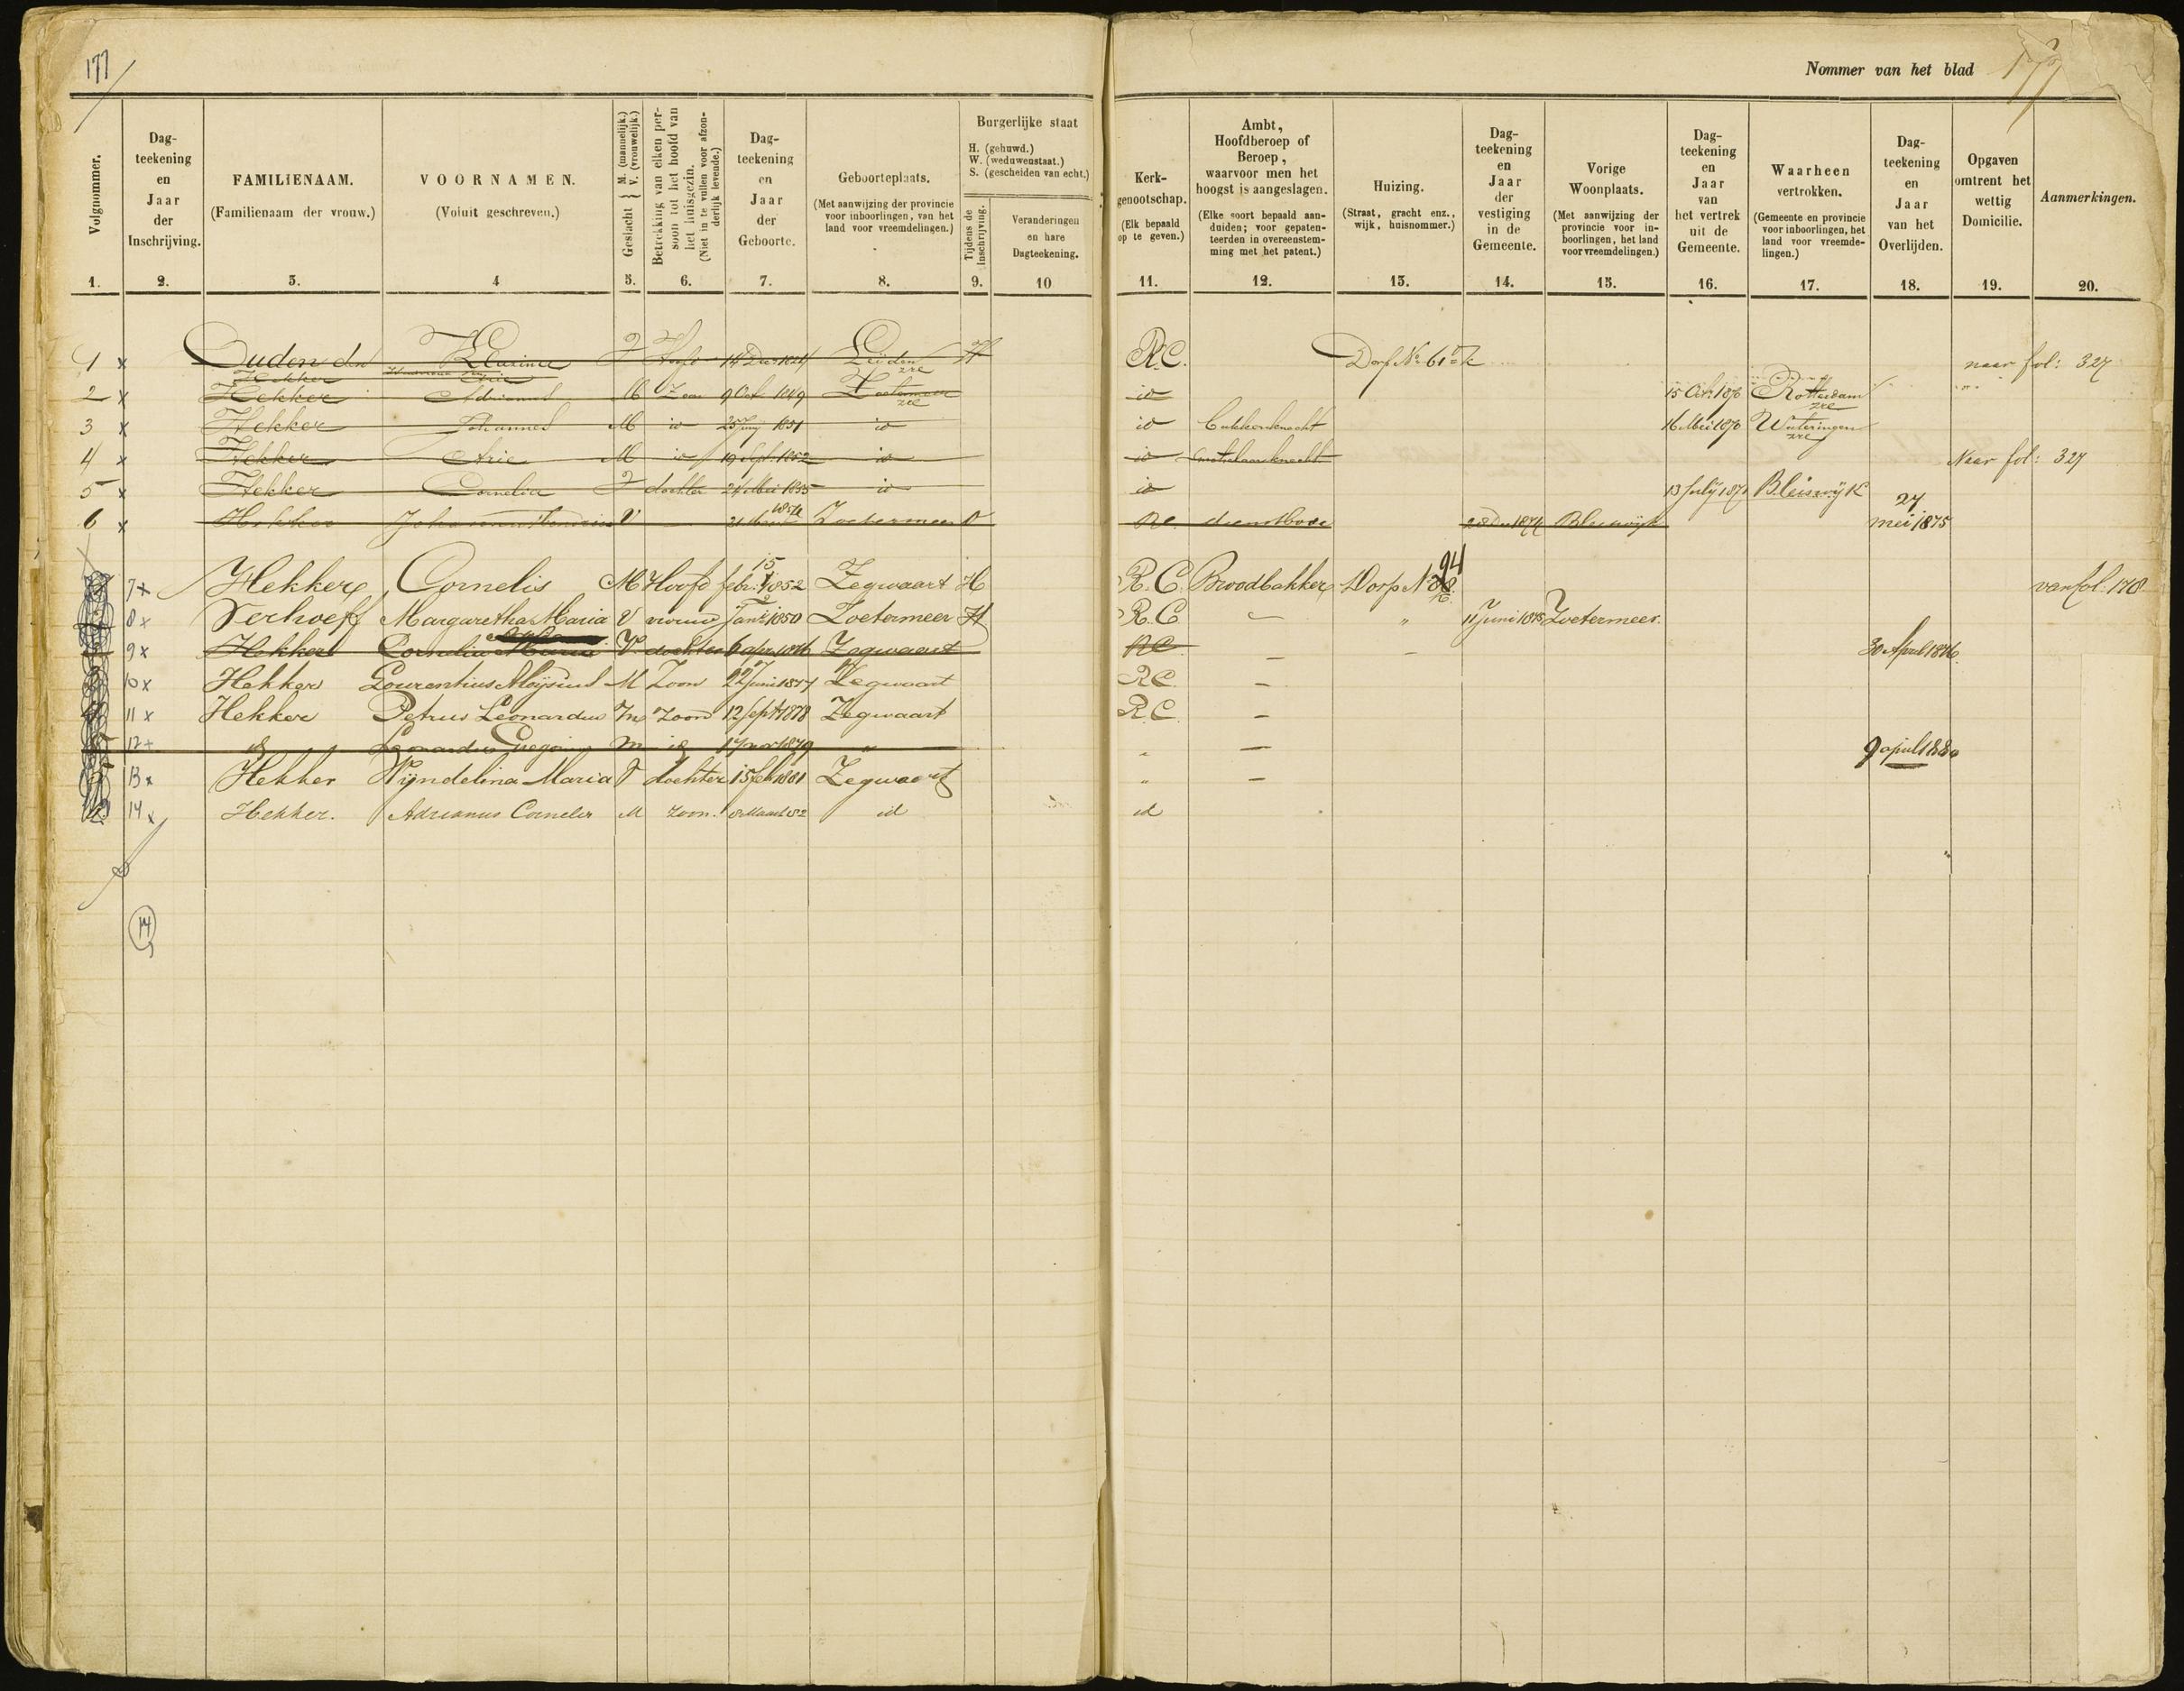 177
Nommer van het blad 177
Volgnommer.
Dag-
teekening
en
Jaar
der
Inschrijving.
FAMILIENAAM.
(Familienaam der vrouw.)
VOORNAMEN.
(Voluit geschreven.)
Geslacht } M. (mannelijk.) V. (vrouwelijk.)
Betrekking van elken per-
soon tot het hoofd van
het huisgezin.
(Niet in te vullen voor afzon-
derlijk levende.)
Dag-
teekening
en
Jaar
der
Geboorte.
Geboorteplaats.
(Met aanwijzing der provincie
voor inboorlingen, van het
land voor vreemdelingen.)
Burgerlijke staat
H. (gehuwd.)
W. (weduwenstaat.)
S. (gescheiden van echt.)
Tijdens de
Inschrijving.
Veranderingen
en hare
Dagteekening.
Kerk-
genootschap.
(Elk bepaald
op te geven.)
Ambt,
Hoofdberoep of
Beroep,
waarvoor men het
hoogst is aangeslagen.
(Elke soort bepaald aan-
duiden; voor gepaten-
teerden in overeenstem-
ming met het patent.)
Huizing.
(Straat, gracht enz.,
wijk, huisnommer.)
Dag-
teekening
en
Jaar
der
vestiging
in de
Gemeente.
Vorige
Woonplaats.
(Met aanwijzing der
provincie voor in-
boorlingen, het land
voor vreemdelingen.)
Dag-
teekening
en
Jaar
van
het vertrek
uit de
Gemeente.
Waarheen
vertrokken.
(Gemeente en provincie
voor inboorlingen, het
land voor vreemde-
lingen.)
Dag-
teekening
en
Jaar
van het
Overlijden.
Opgaven
omtrent het
wettig
Domicilie.
Aanmerkingen.
1. 2. 3. 4 5. 6. 7. 8. 9. 10 11. 12. 13. 14. 15. 16. 17. 18. 19. 20.
1 x Ouden den Klasina V Hoofd 14 Dec 1824 Leiden H R.C. Dorp No 61 naar fol: 327
Hekker Arie
2 x Hekker Adrianus M Zoon 9 Oct 1849 Zoetermeer io 15 Oct 1870 Rotterdam
3 x Hekker Johannes M io 25 Junij 1851 io io bakkersknecht 16 Mei 1870 Wateringen
4 x Hekker Arie M io 19 Sept. 1852 io io Naar fol: 327
5 x Hekker Cornelia V dochter 24 Mei 1855 io io 13 July 1871 Bleiswijk
6 x Hekker Johanna V Zoetermeer O RC. dienstbode 28 Dec 1874 Bleiswijk 27 mei 1875
7 x Hekker Cornelis M Hoofd 15 febr. 1852 Zegwaart H R.C. Broodbakker Dorp No 94 van fol. 178
8 x Verhoeff Margaretha Maria V vrouw Janr 1850 Zoetermeer H R.C. " 11 Juni 1875 Zoetermeer
9 x Hekker Cornelia Maria V. dochter 6 apr. 1876 Zegwaart RC 30 April 1876
10 x Hekker Laurentius Aloijsius M Zoon 22 Juni 1877 Zegwaart RC
11 x Hekker Petrus Leonardus M Zoon 12 Sept 1878 Zegwaart R.C.
12 + Leonardus m id 17 nov 1879 " " 9 april 1880
13 x Hekker Wijndelina Maria V dochter 15 feb 1881 Zegwaart "
14 x Hekker. Adrianus Cornelis M Zoon. 8 Maart 82 id id
14